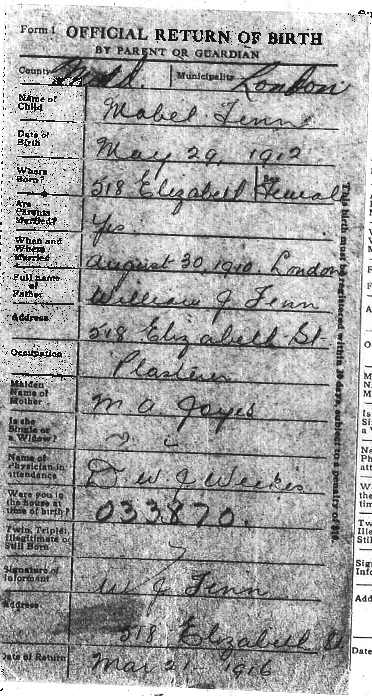 Form 1 OFFICIAL RETURN OF BIRTH
BY PARENT OR GUARDIAN
County Midd. Municipality London
Name of Child Mabel Fenn
Date of Birth May 29, 1912
Where Born? 518 Elizabeth Sex Female
Are Parents Married? Yes
When and Where Married August 30 1910, London
Full name of Father William J Fenn
Address 518 Elizabeth St.
Occupation Plasterer
Maiden Name of Mother M A Joyes
Is she Single or a Widow?
Name of Physician in attendance Dr W J Weekes
Were you in the house at time of birth? 033870.
Twin, Triplet, Illegitimate or Still Born
Signature of Informant W J Fenn
Address 518 Elizabeth St
Date of Return Mar 2 1916
This birth must be registered within 30 days, subject to a penalty of